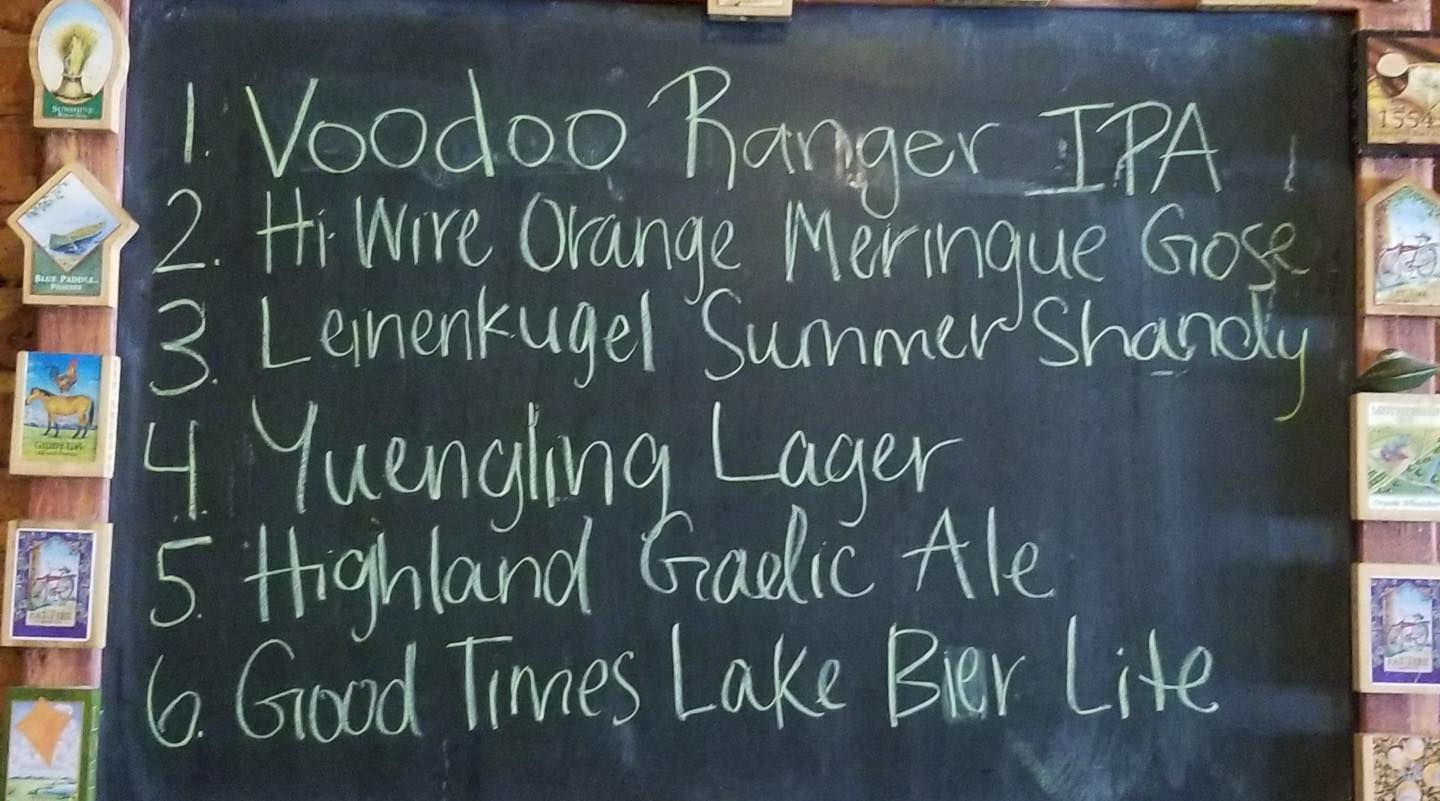 1. Voodoo Ranger IPA
2. Hi-Wire Orange Meringue Gose
3. Leinenkugel Summer Shandy
4. Yuengling Lager
5. Highland Gaelic Ale
6. Good Times Lake Bier Lite
SUNSHINE
BLUE PADDLE
PILSENER
1554
FAT TIRE
FAT TIRE